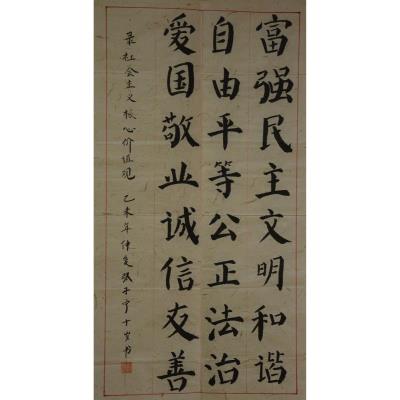 富强民主文明和谐
自由平等公正法治
爱国敬业诚信友善
录社会主义核心价值观 乙未年仲夏 张子宁十岁书